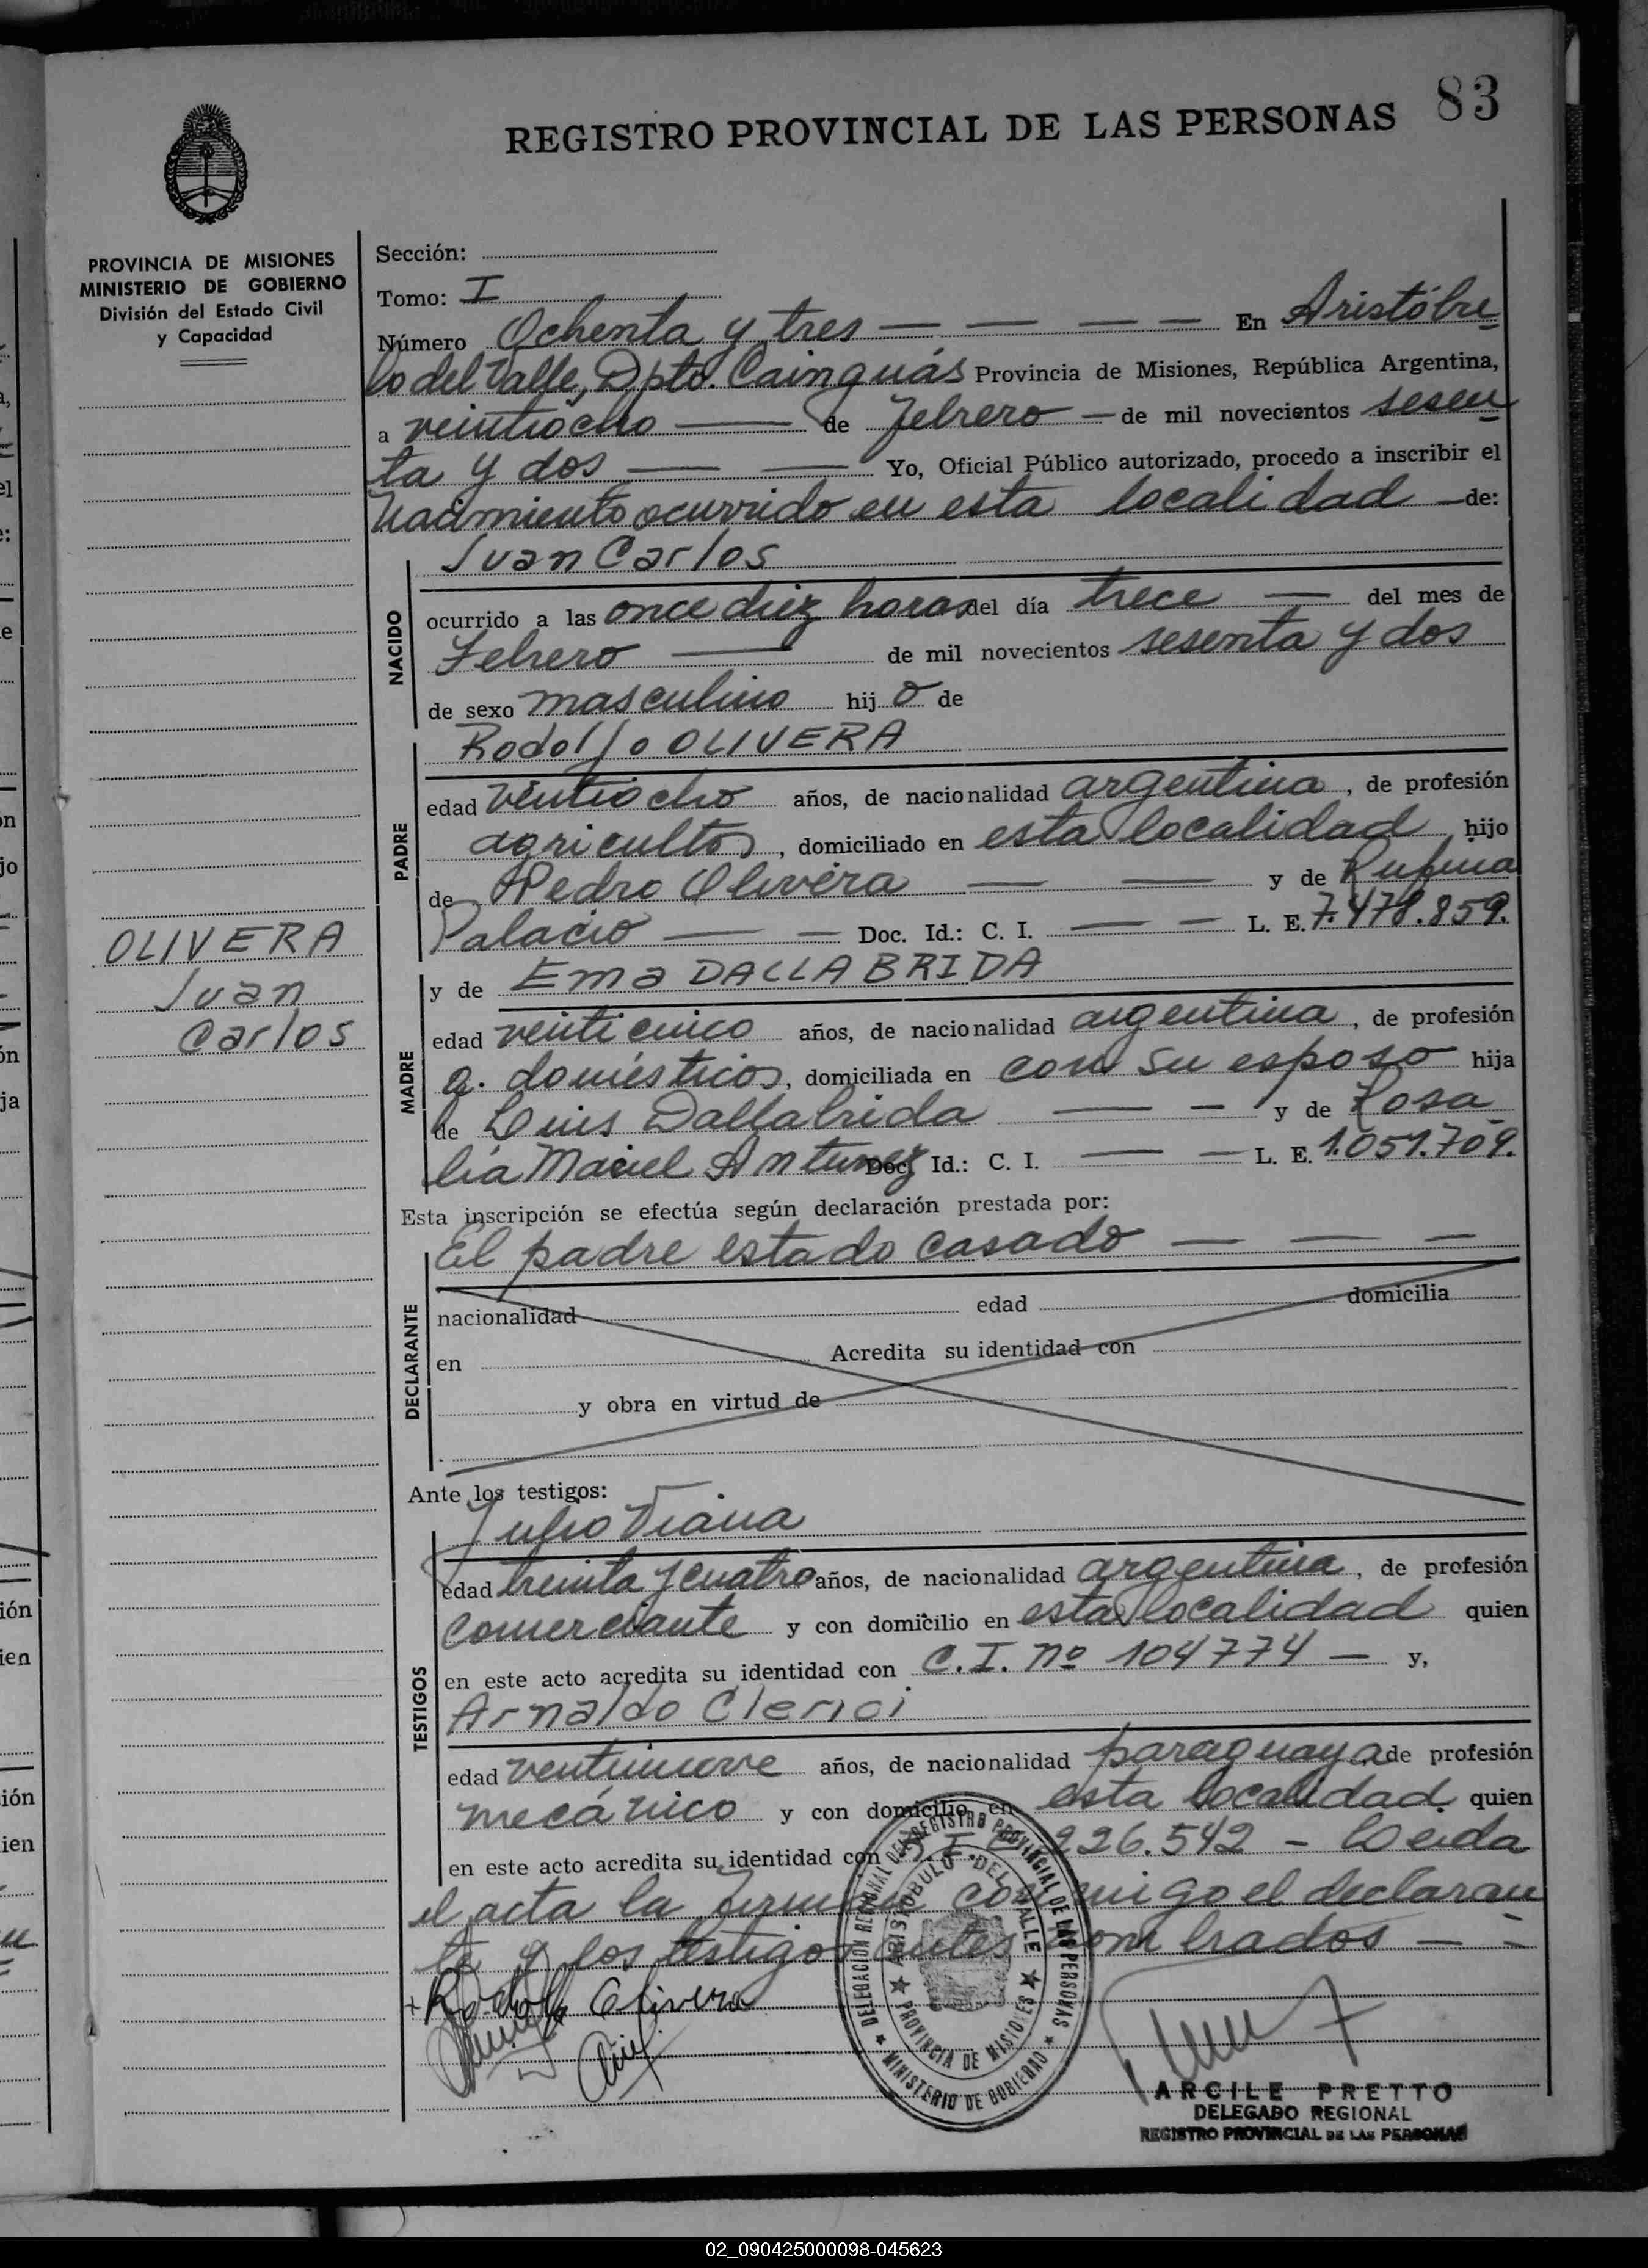 83
REGISTRO PROVINCIAL DE LAS PERSONAS
PROVINCIA DE MISIONES
MINISTERIO DE GOBIERNO
División del Estado Civil
y Capacidad
OLIVERA
Juan
Carlos
Sección:
Tomo: I
Número Ochenta y tres — — — — En Aristóbu
lo del Valle, Dpto. Cainguás Provincia de Misiones, República Argentina,
a veintiocho — de febrero — de mil novecientos sesen
ta y dos — — Yo, Oficial Público autorizado, procedo a inscribir el
Nacimiento ocurrido en esta localidad — de:
NACIDO
Juan Carlos
ocurrido a las once diez horas del día trece — del mes de
Febrero — de mil novecientos sesenta y dos
de sexo masculino hij o de
PADRE
Rodolfo OLIVERA
edad ventiocho años, de nacionalidad argentina, de profesión
agricultor, domiciliado en esta localidad hijo
de Pedro Olivera — — y de Rufina
Palacio — — Doc. Id.: C. I. — — L. E. 7.478.859.
MADRE
y de Ema DALLABRIDA
edad venticinco años, de nacionalidad argentina, de profesión
q. domésticos, domiciliada en con su esposo hija
de Luis Dallabrida — — y de Rosa
lía Maciel Antunez Doc. Id.: C. I. — — L. E. 1.051.709.
Esta inscripción se efectúa según declaración prestada por:
DECLARANTE
El padre estado casado — — —
nacionalidad edad domicilia
en Acredita su identidad con
y obra en virtud de
Ante los testigos:
TESTIGOS
Julio Viana
edad treinta y cuatro años, de nacionalidad argentina, de profesión
comerciante y con domicilio en esta localidad quien
en este acto acredita su identidad con C.I. nº 104774 — y,
Arnaldo Clerici
edad ventinueve años, de nacionalidad paraguaya de profesión
mecánico y con domicilio en esta localidad. quien
en este acto acredita su identidad con 226.542 - Leida
el acta la firman conmigo el declaran
te y los testigos antes nombrados — —
Rodolfo Olivera
DELEGACION REGIONAL DEL REGISTRO PROVINCIAL DE LAS PERSONAS
MINISTERIO DE GOBIERNO
ARISTOBULO DEL VALLE
PROVINCIA DE MISIONES
ARCILE PRETTO
DELEGADO REGIONAL
REGISTRO PROVINCIAL DE LAS PERSONAS
02_090425000098-045623